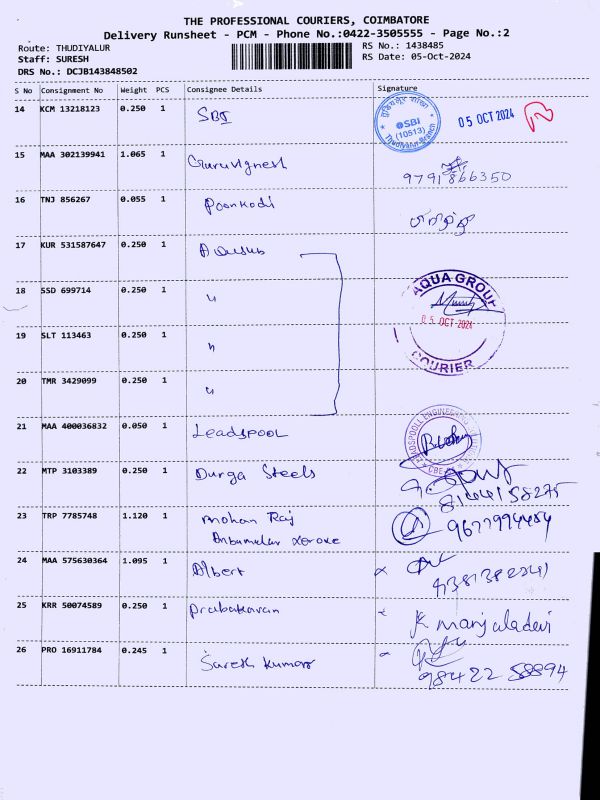 THE PROFESSIONAL COURIERS, COIMBATORE
Delivery Runsheet - PCM - Phone No.:0422-3505555 - Page No.:2
Route: THUDIYALUR
Staff: SURESH
DRS No.: DCJB143848502
RS No.: 1438485
RS Date: 05-Oct-2024
S No Consignment No Weight PCS Consignee Details Signature
14 KCM 13218123 0.250 1 SBI
SBI (10513) Thudiyalur Branch 05 OCT 2024
15 MAA 302139941 1.065 1 Guruvignesh
9791866350
16 TNJ 856267 0.055 1 Poonkodi
17 KUR 531587647 0.250 1
18 SSD 699714 0.250 1 "
AQUA GROUP
05 OCT 2024
COURIER
19 SLT 113463 0.250 1 "
20 TMR 3429099 0.250 1 "
21 MAA 400036832 0.050 1 LeadSPOOL
22 MTP 3103389 0.250 1 Durga Steels
8144158275
23 TRP 7785748 1.120 1 Mohan Raj
Anbumalar Xerox
24 MAA 575630364 1.095 1 Albert
25 KRR 50074589 0.250 1 Prabakaran
K manjuladevi
26 PRO 16911784 0.245 1 Suresh Kumar
98422 58894